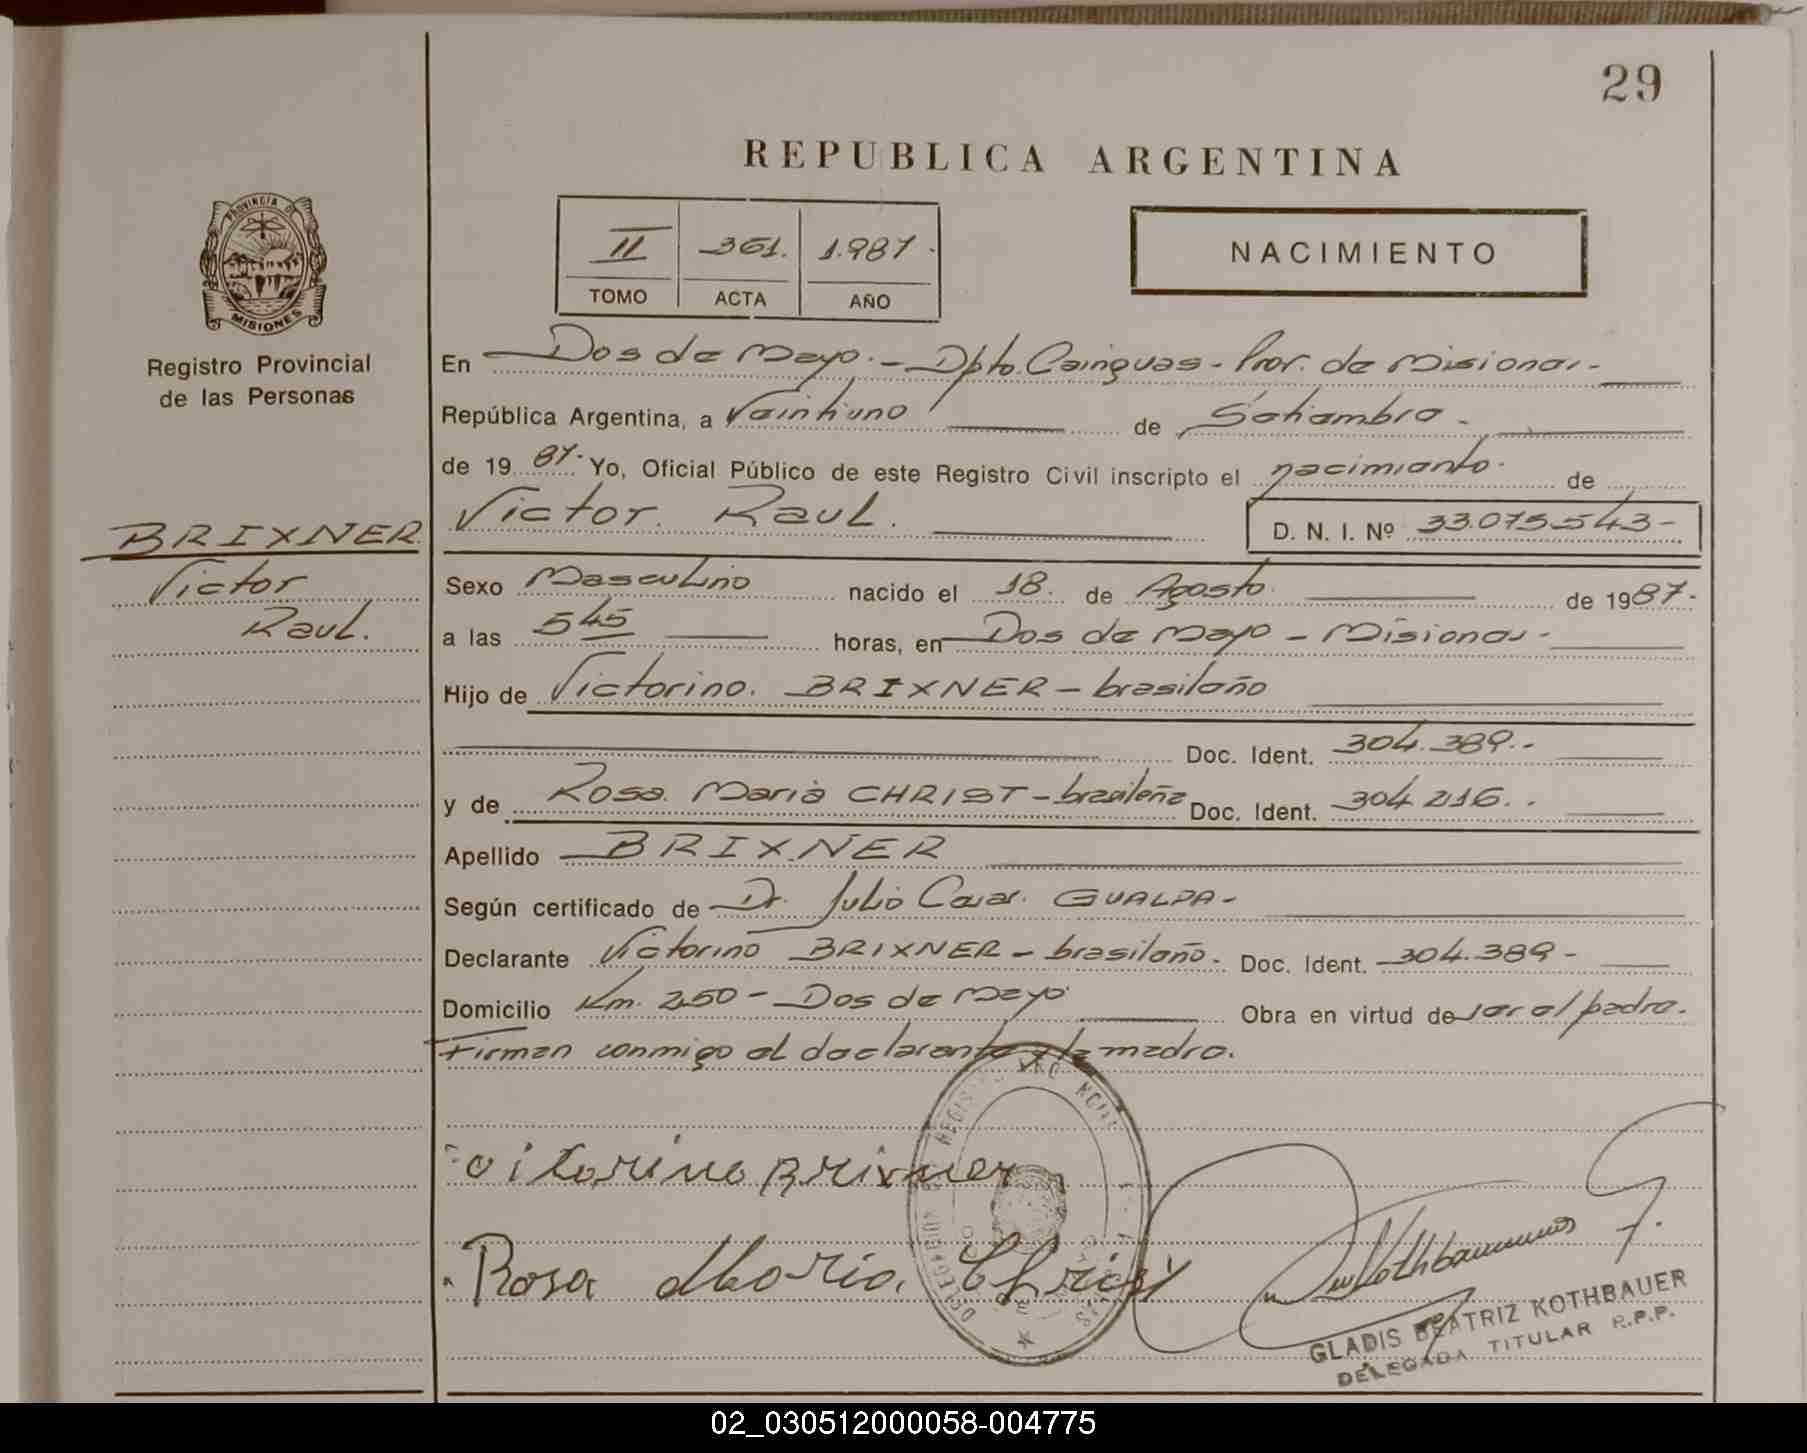 29
REPUBLICA ARGENTINA
II 361. 1.987.
TOMO ACTA AÑO
NACIMIENTO
PROVINCIA DE
MISIONES
Registro Provincial
de las Personas
BRIXNER
Victor
Raul.
En Dos de Mayo.- Dpto. Cainguas - Prov. de Misiones.-
República Argentina, a Veintiuno de Setiembre.
de 19 87. Yo, Oficial Público de este Registro Civil inscripto el nacimiento. de
Victor. Raul. D. N. I. Nº 33.075.543-
Sexo Masculino nacido el 18. de Agosto. de 1987.
a las 5 45 horas, en Dos de Mayo - Misiones.
Hijo de Victorino. BRIXNER - brasileño
Doc. Ident. 304.389.-
y de Rosa Maria CHRIST - brasileña Doc. Ident. 304.216..
Apellido BRIXNER
Según certificado de Dr. Julio Cesar. GUALPA-
Declarante Victorino BRIXNER - brasileño. Doc. Ident. 304.389-
Domicilio Km. 250 - Dos de Mayo Obra en virtud de ser el padre.
Firman conmigo el declarante y la madre.
Vitorino Brixner
Rosa Maria Christ
GLADIS BEATRIZ KOTHBAUER
DELEGADA TITULAR R.P.P.
02_030512000058-004775